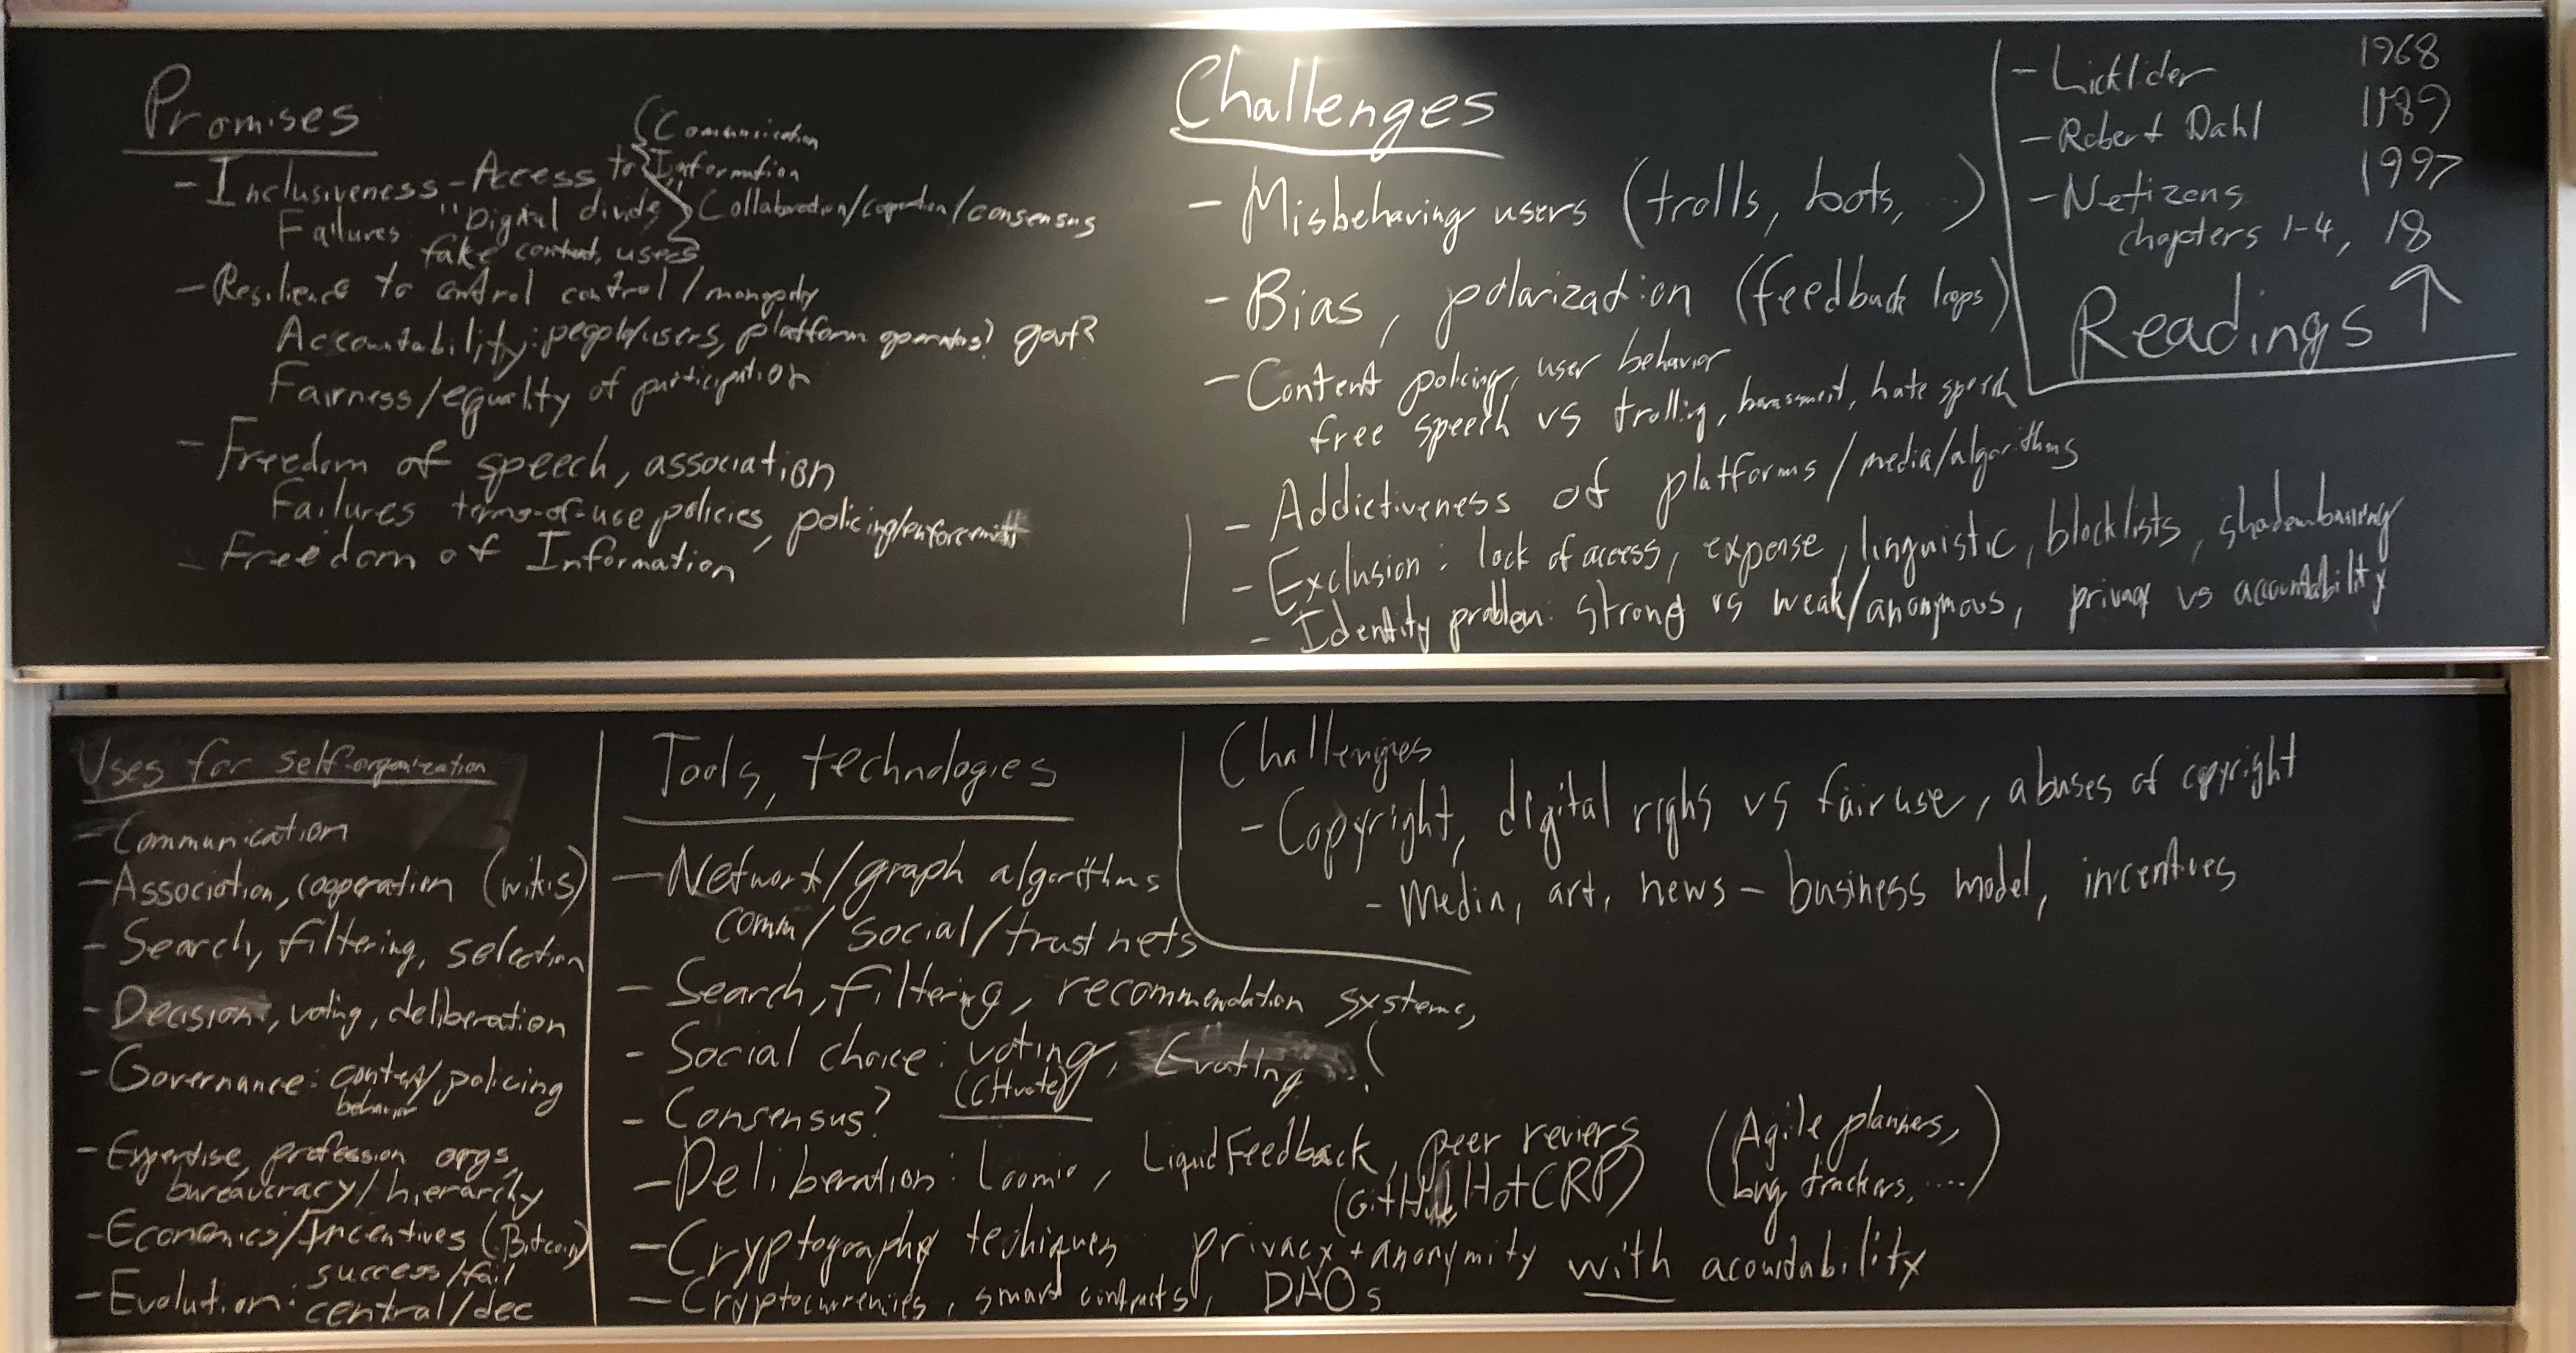 Promises
- Inclusiveness - Access to { Communication
Information
Collaboration/cooperation/consensus
Failures "Digital divide"
fake content, users
- Resilience to control control/monopoly
Accountability: people/users, platform operators? govt?
Fairness/equality of participation
- Freedom of speech, association
Failures terms-of-use policies, policing/enforcement
- Freedom of Information
Challenges
- Misbehaving users (trolls, bots, ...)
- Bias, polarization (feedback loops)
- Content policing, user behavior
free speech vs trolling, harassment, hate speech
- Addictiveness of platforms/media/algorithms
- Exclusion: lack of access, expense, linguistic, blocklists, shadowbanning
- Identity problem: strong vs weak/anonymous, privacy vs accountability
- Licklider 1968
- Robert Dahl 1989
- Netizens 1997
chapters 1-4, 18
Readings ↑
Uses for self-organization
- Communication
- Association, cooperation (wikis)
- Search, filtering, selection
- Decision, voting, deliberation
- Governance: content/policing
behavior
- Expertise, profession orgs,
bureaucracy/hierarchy
- Economics/Incentives (Bitcoin)
- Evolution: success/fail
central/dec
Tools, technologies
- Network/graph algorithms
comm/social/trust nets
- Search, filtering, recommendation systems,
- Social choice: voting, Evoting (
(CHvote)
- Consensus?
- Deliberation: Loomio, LiquidFeedback, peer reviers (Agile planners,
(GitHub, HotCRP) bug trackers, ....)
- Cryptography techiques privacy + anonymity with acountability
- Cryptocurrencies, smart contracts, DAOs
Challengies
- Copyright, digital righs vs fair use, abuses of copyright
- Media, art, news - business model, incentives